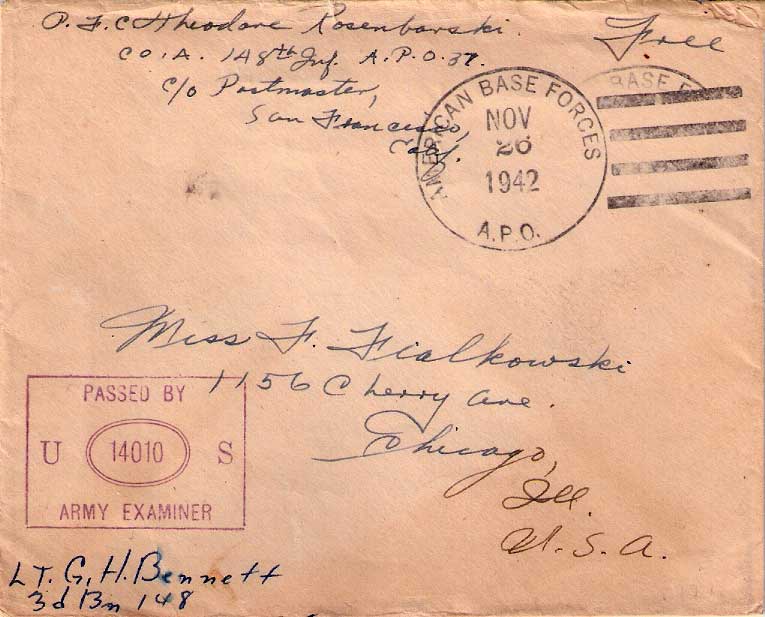 P.F.C Theodore Rosenbarski.
CO. A. 148th Inf. A.P.O. 37.
c/o Postmaster,
San Francisco,
Calif.
Free
AMERICAN BASE FORCES
NOV
26
1942
A.P.O.
BASE F
Miss F. Fialkowski
1156 Cherry Ave.
Chicago,
Ill.
U.S.A.
PASSED BY
U 14010 S
ARMY EXAMINER
LT. G. H. Bennett
3d Bn 148